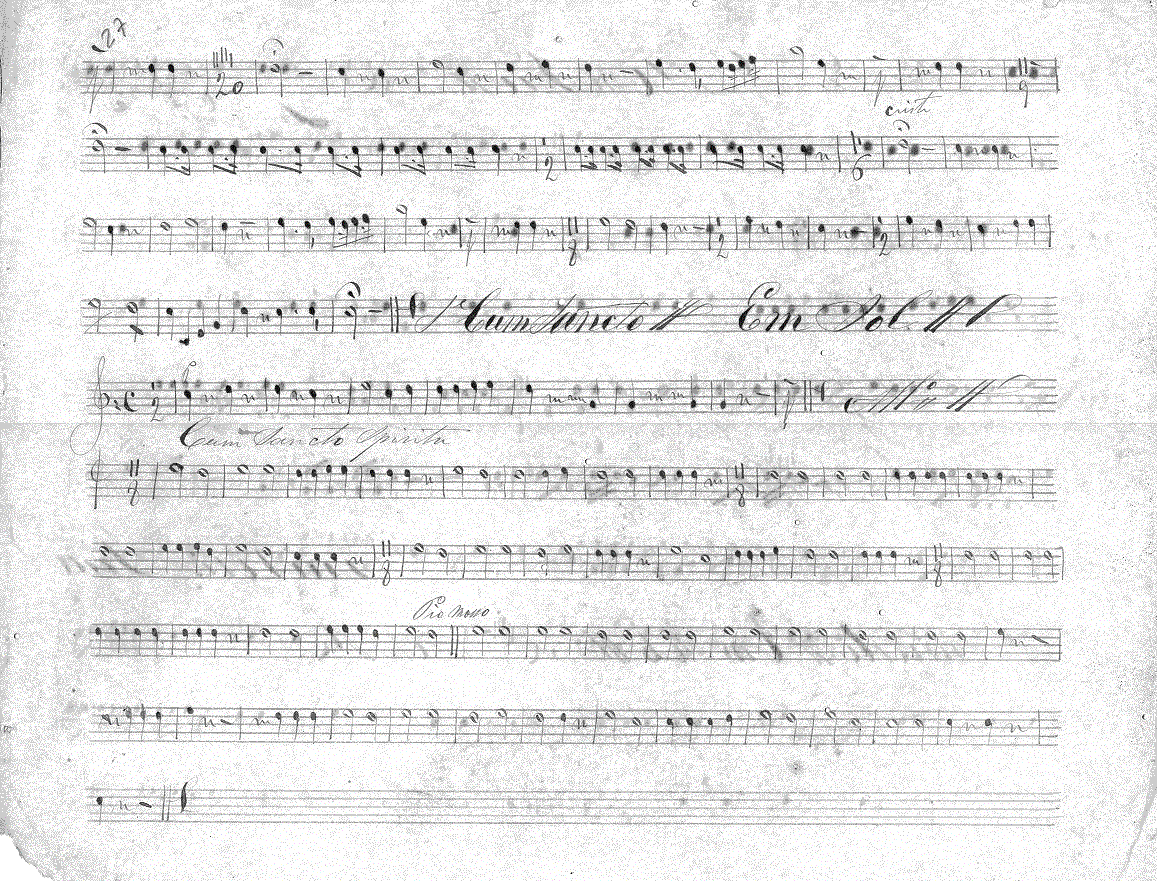 27
20
9
crists
2
6
8
2
2
Cum Sancto Em Sol
C
2
Cum Sancto Spiritu
8
8
8
8
Piu mosso